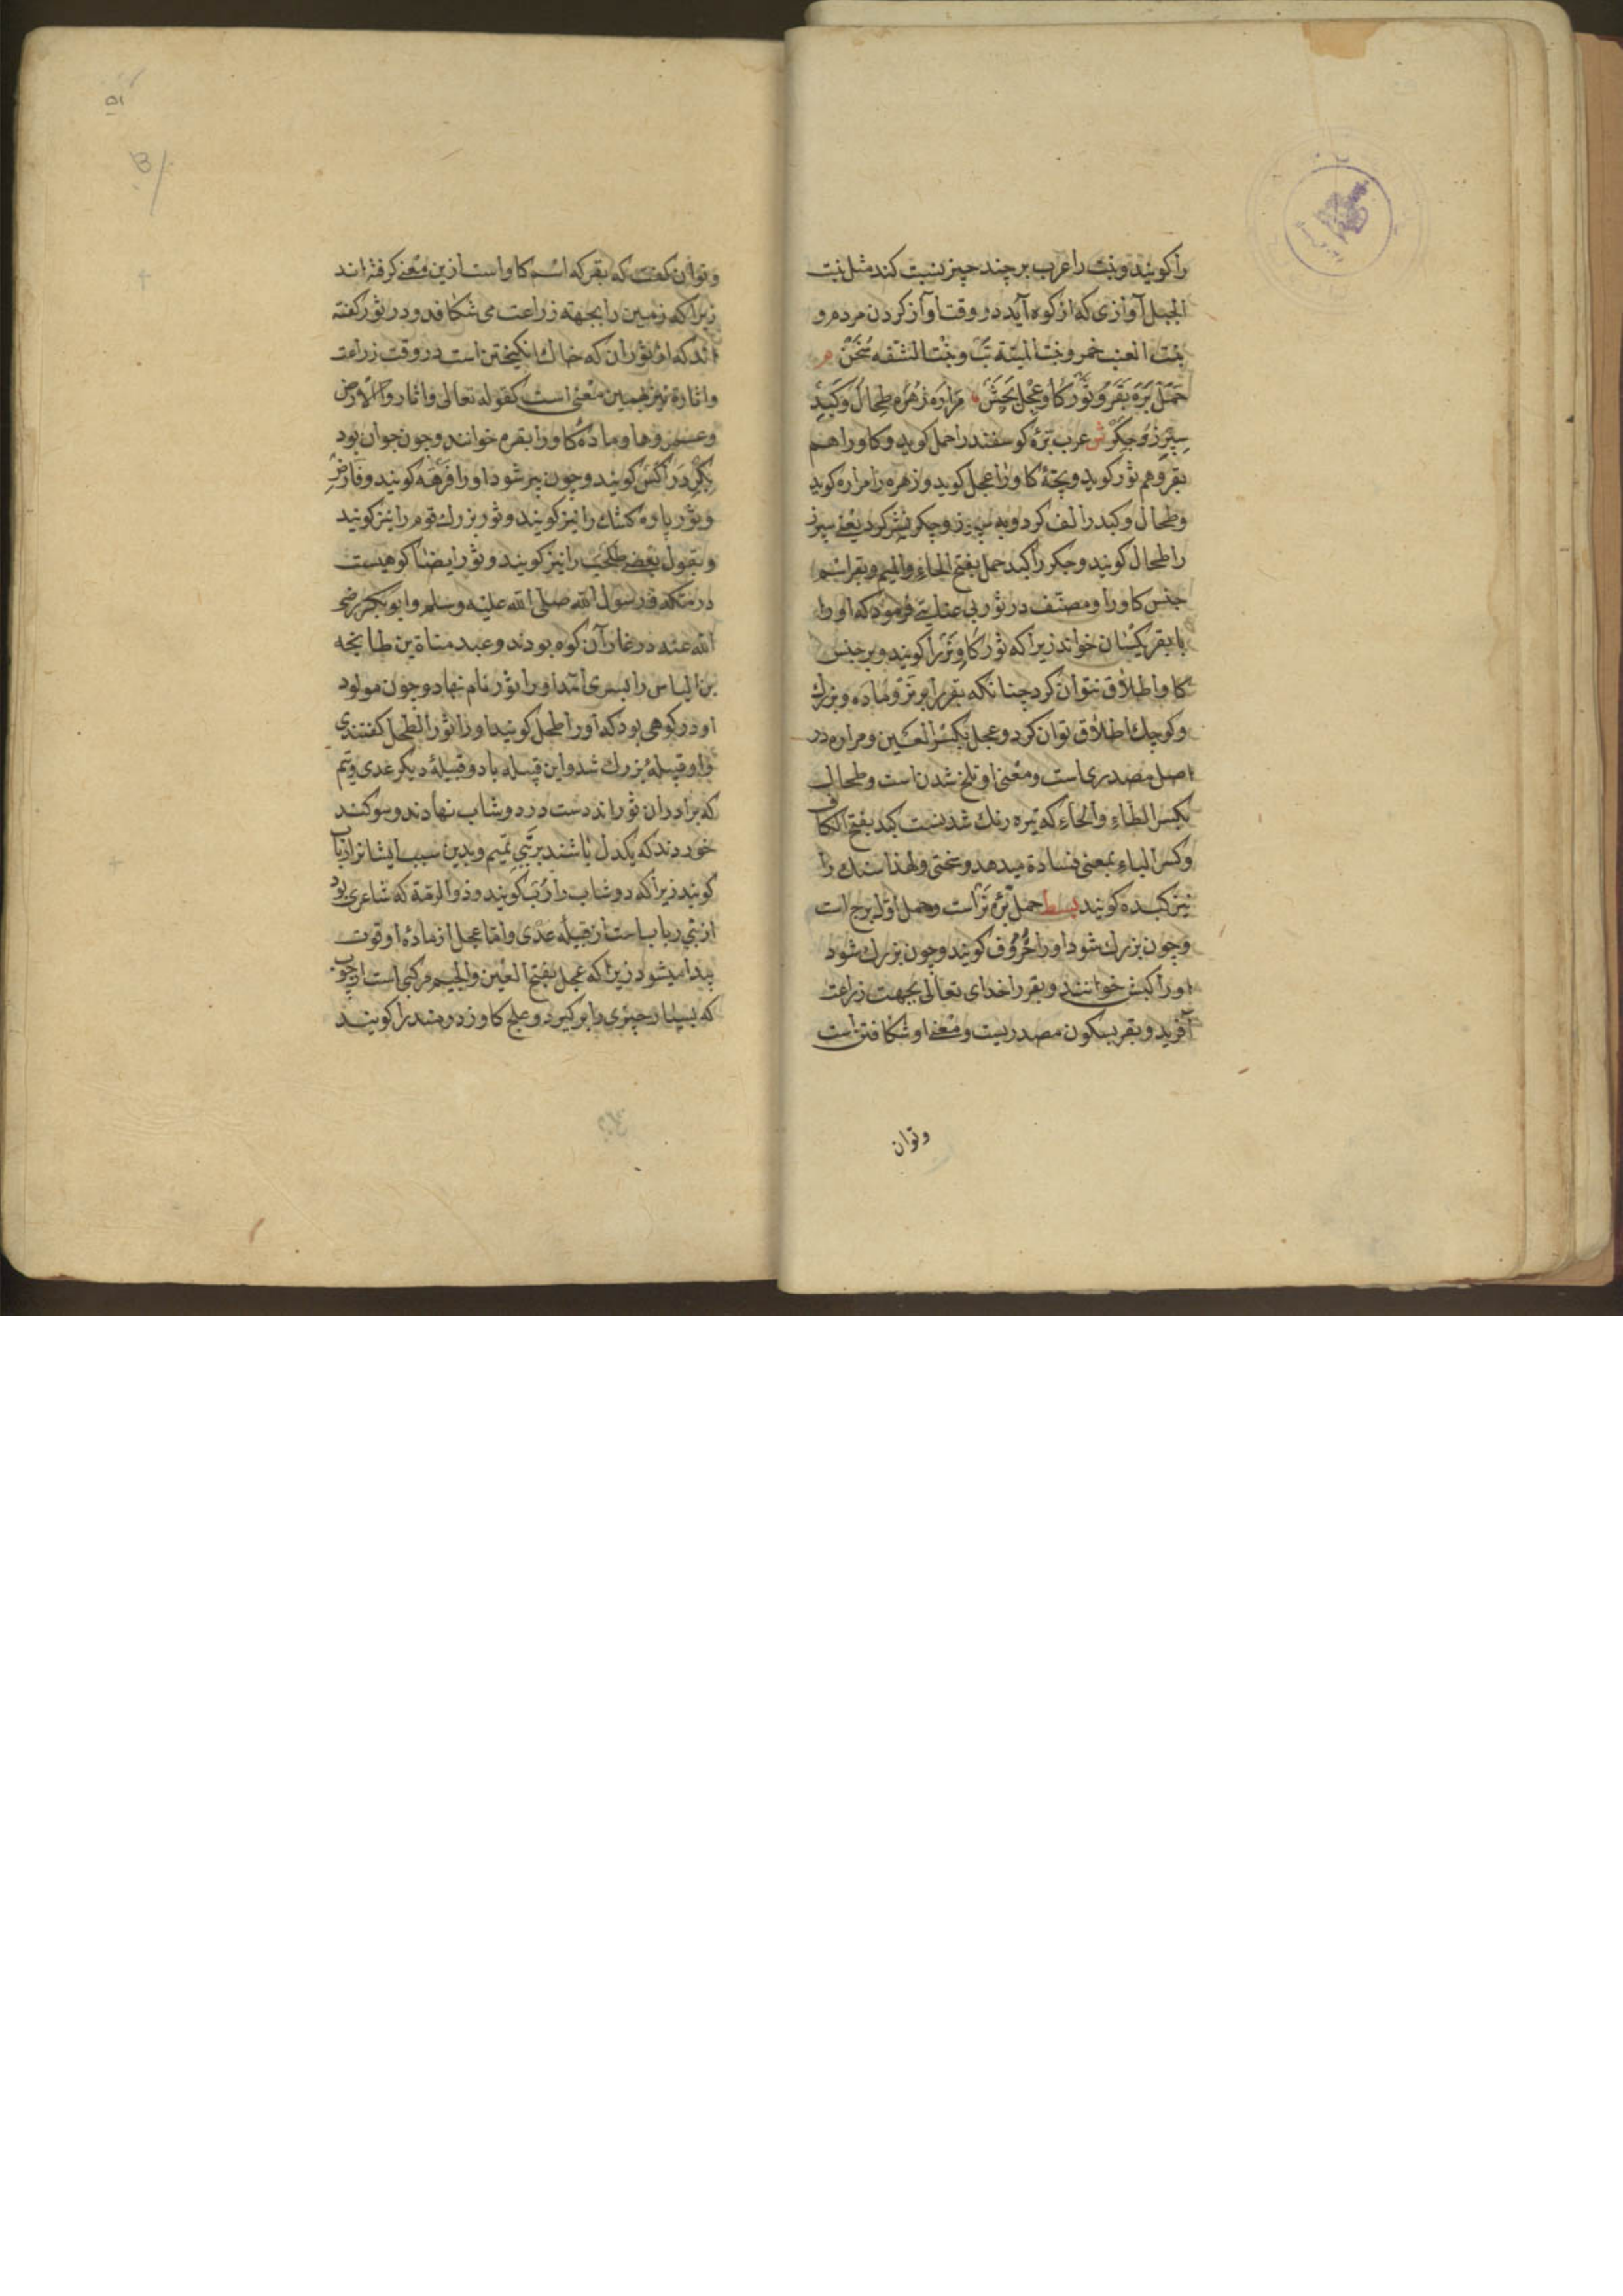 را کویند و بنت را عرب بر چند چیز نسبت کند مثل بنت
الجبل آوازی که از کوه آید در وقت اواز کردن مردم و
بنت العنب خمر و بنت المیتة تب و بنت الشفه سخن
حمل بره بقر و ثور کاو عجل بچش مراره زهره طحال و کبد
سپرز و جکر ش عرب برّه کوسفند را حمل کوید و کاو را هم
بقر و هم ثور کوید و بچۀ کاو را عجل کوید و زهره را مراره کوید
وطحال و کبد را لف کرد و به سپرز و جکر نشر کرد یعنی سپرز
را طحال کویند و جکر را کبد حمل بفتح الحاء والمیم و بقر اسم
جنس کاو را و مصنف در ثور بی عنایتی فرمود که او را
با بقر یکسان خواند زیرا که ثور کاو نر را کویند و بر جنس
کاو اطلاق نتوان کرد چنانکه بقر را بر نر و ماده و بزرك
وکوچك اطلاق توان کرد وعجل بکسر العین و مراره در
اصل مصدری است ومعنی او تلخ شدن است وطحال
بکسر الطاء والحاء که تیره رنك شدنست کبد بفتح الکاف
وکسر الباء بمعنی فساده میدهد وسختی ولهذا سنك را
نیز کبده کویند بسط حمل برّه نر است وحمل اوّل برج است
وچون بزرك شود او را خروف کویند وچون بزرك شود
او را کبش خوانند و بقر را خدای تعالی بجهت زراعت
آفرید و بقر بسکون مصدریست و معنی او شکافتن است
وتوان
۵۱
وتوان کفت که بقر که اسم کاو است ازین معنی کرفته اند
زیرا که زمین را بجهة زراعت می شکافد و در ثور کفته
اند که از ثوران که خاك انکیختن است در وقت زراعت
واثارة نیز بهمین معنی است کقوله تعالی واثاروا الارض
وعمروها وماده کاو را بقره خوانند وچون جوان بود
بکر در اکش کویند وچون پیر شود او را فرهه کویند وفارض
وثور پاره کشك را نیز کویند وثور بزرك قوم را نیز کویند
وبقول بعضی طحلب را نیز کویند وثور ایضا کوهیست
در مکه که رسول الله صلی الله علیه وسلم وابوبکر رضی
الله عنه در غار آن کوه بودند وعبد مناة بن طابخه
بن الیاس را پسری آمد او را ثور نام نهاد وچون مولود
او در کوهی بود که او را طحل کویند او را ثور الطحل کفتندی
واو قبیلۀ بزرك شد واین قبیله با دو قبیلۀ دیکر عدی وتیم
که برادران ثور اند دست در دوشاب نهادند وسوکند
خوردند که یکدل باشند بر بنی تمیم وبدین سبب ایشانرا رباب
کویند زیرا که دوشاب را رُبّ کویند وذوالرمة که شاعری بود
از بنی رباب است از قبیله عدی واما عجل از ماده او قوت
پیدا میشود زیرا که عجل بفتح العین والجیم مرکبی است از چوب
که بسیار چیزی را بر کیرد وعلج کاو زورمند را کویند